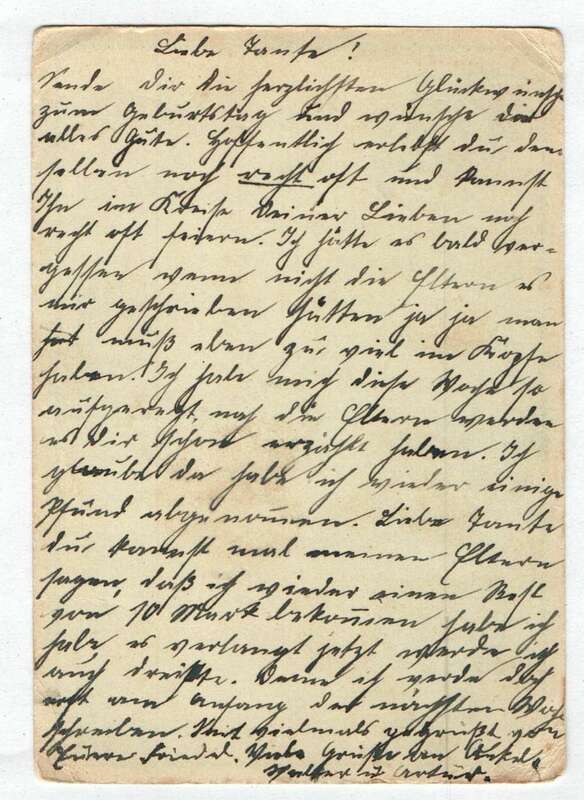 Liebe Tante!
Sende dir die herzlichsten Glückwünsche
zum Geburtstag und wünsche dir
alles Gute. Hoffentlich erlebst du den-
selben noch recht oft und kannst
Ihn im Kreise deiner Lieben noch
recht oft feiern. Ich hätte es bald ver-
gessen wenn nicht die Eltern es
mir geschrieben hätten ja ja man
muß eben zu viel im Kopfe
haben. Ich habe mich diese Woche so
aufgeregt, na die Eltern werden
es dir schon erzählt haben. Ich
glaube da habe ich wieder einige
Pfund abgenommen. Liebe Tante
du kannst mal meinen Eltern
sagen, daß ich wieder einen Rest
von 10 Mark bekommen habe ich
habe es verlangt jetzt werde ich
auch dreiste. Denn ich werde doch
erst am Anfang der nächsten Woche
schreiben. Seit vielmals gegrüßt von
Eurer Friedel. Viele Grüße an Onkel,
Walter u Artur.